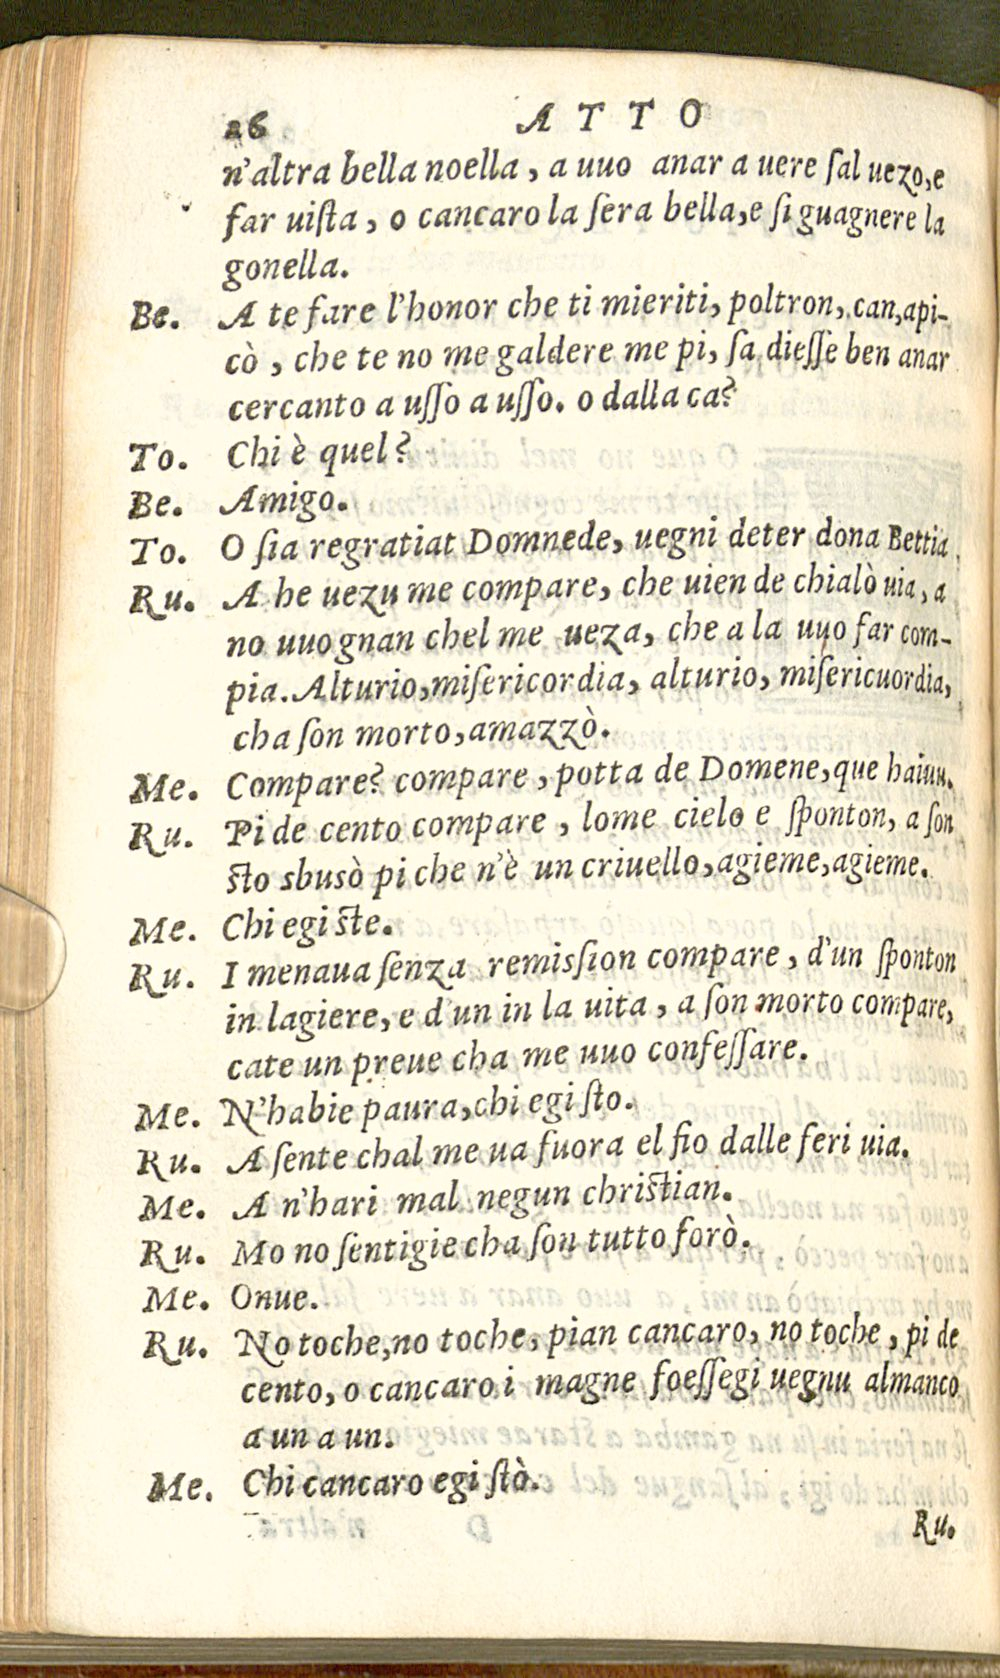 26 ATTO
n'altra bella noella, a uuo anar a uere ſal uezo, e
far uiſta, o cancaro la ſera bella, e ſi guagnere la
gonella.
Be. A te fare l'honor che ti mieriti, poltron, can, api-
cò, che te no me galdere me pi, ſa dieſſe ben anar
cercanto a uſſo a uſſo. o dalla ca?
To. Chi è quel?
Be. Amigo.
To. O ſia regratiat Domnede, uegni deter dona Bettia
Ru. A he uezu me compare, che uien de chialò uia, a
no uuognan chel me ueza, che a la uuo far com-
pia. Alturio, miſericordia, alturio, miſericuordia,
cha ſon morto, amazzò.
Me. Compare? compare, potta de Domene, que haiuu.
Ru. Pi de cento compare, lome cielo e ſponton, a ſon
ſto sbusò pi che n'è un criuello, agieme, agieme.
Me. Chi egi ſte.
Ru. I menaua ſenza remisſion compare, d'un ſponton
in lagiere, e d un in la uita, a ſon morto compare,
cate un preue cha me uuo confeſſare.
Me. N'habie paura, chi egi ſto.
Ru. A ſente chal me ua fuora el fio dalle feri uia.
Me. A n'hari mal negun chriſtian.
Ru. Mo no ſentigie cha ſon tutto forò.
Me. Onue.
Ru. No toche, no toche, pian cancaro, no toche, pi de
cento, o cancaro i magne foeſſegi uegnu almanco
a un a un.
Me. Chi cancaro egi ſtò.
Ru.